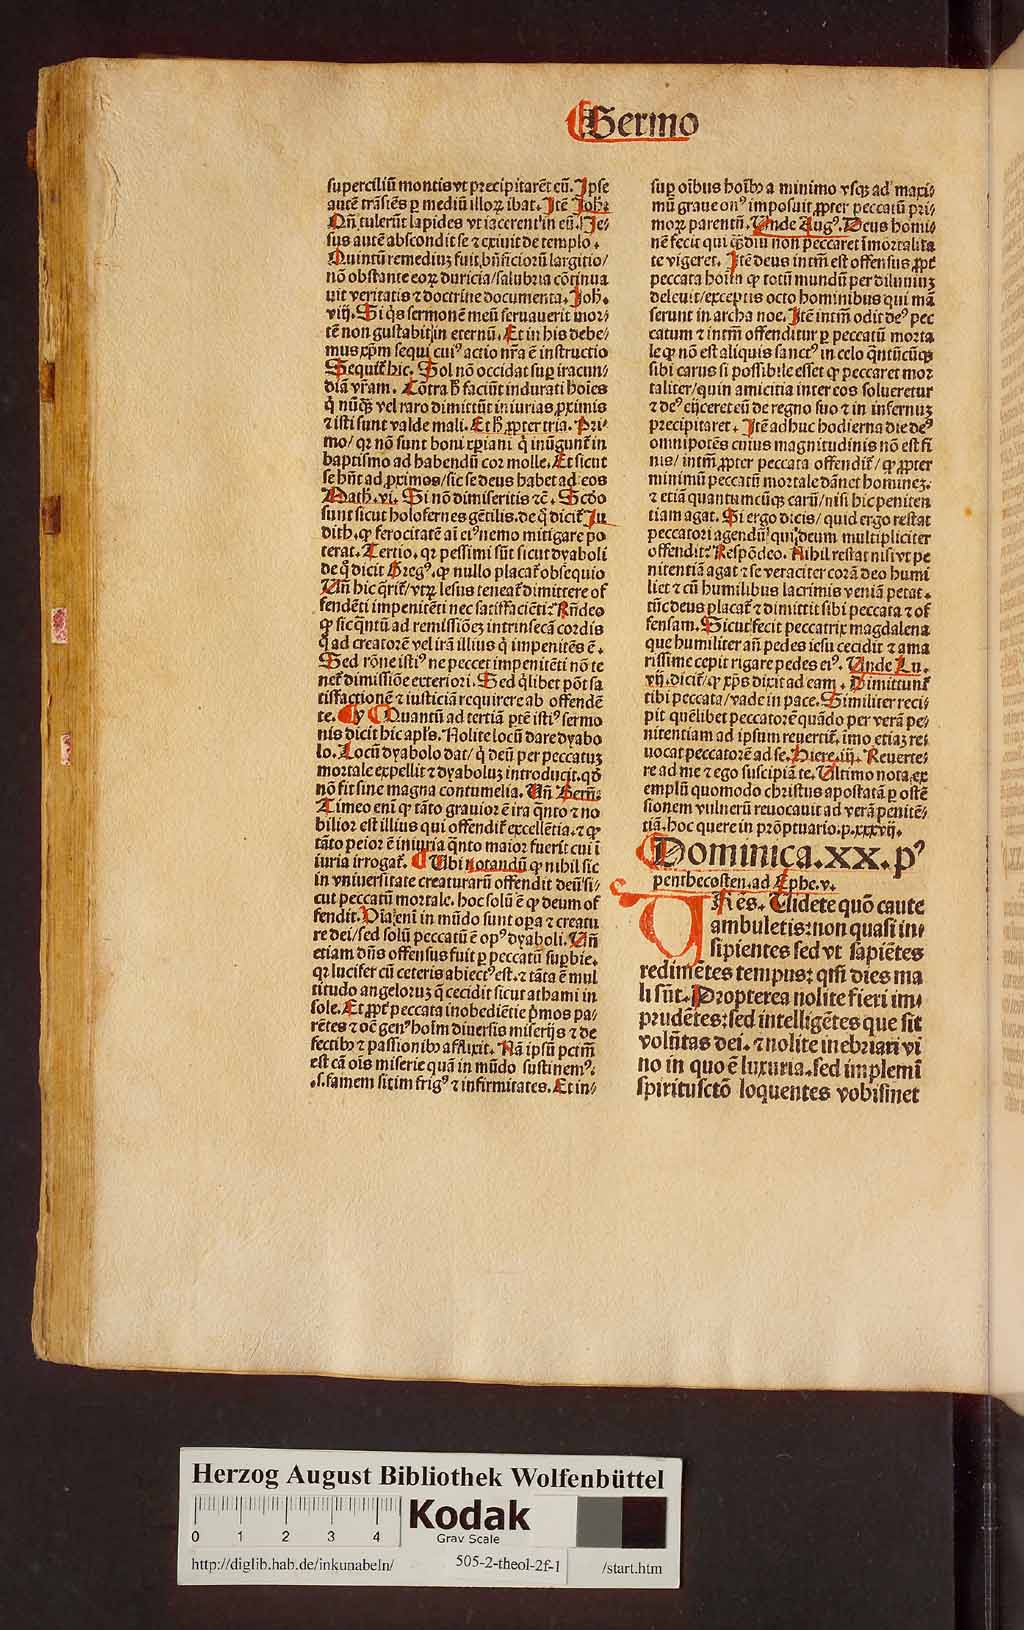 Sermo
superciliū montis vt precipitarēt eū. Ipse
autē trāsiēs ꝑ mediū illoꝝ ibat. Itē Joh.
Qn̄ tulerūt lapides vt iacerent in eū. Je-
sus autē abscondit se ⁊ exiuit de templo.
Quintū remediuꝫ fuit bn̄ficiorū largitio/
nō obstante eoꝝ duricia/salubria cōtinua
uit veritatis ⁊ doctrine documenta. Joh.
viij. Si qͥs sermonē meū seruauerit mor-
tē non gustabit in eternū. Et in his debe-
mus xp̄m sequi cuiꝰ actio nr̄a ē instructio
Sequit̄ hic. Sol nō occidat suꝑ iracun-
diā vr̄am. Cōtra h̄ faciūt indurati hoīes
q̇ nūqͣꝫ vel raro dimittūt iniurias ꝓximis
⁊ isti sunt valde mali. Et h̄ ꝓpter tria. Pri-
mo/ qꝛ nō sunt boni xp̄iani q̇ inūgunt̄ in
baptismo ad habendū cor molle. Et sicut
se hn̄t ad ꝓximos/sic se deus habet ad eos
Math. vi. Si nō dimiseritis ⁊c̄. Scd̄o
sunt sicut holofernes gētilis. de q̇ dicit̄ Ju
dith. ꝙ ferocitatē aī eiꝰ nemo mitigare po
terat. Tertio. qꝛ pessimi sūt sicut dyaboli
de qͦ dicit Gregꝰ. ꝙ nullo placat̄ obsequio
Vn̄ hic q̄rit̄/vtꝝ lesus teneat̄ dimittere of
fendēti impenitēti nec satisfaciēti? Rn̄deo
ꝙ sic qͣntū ad remissiōeꝫ intrinsecā cordis
qͣ ad creatorē vel irā illius q̇ impenitēs ē.
Sed rōne istiꝰ ne peccet impenitēti nō te
net̄ dimissiōe exteriori. Sed qͥlibet pōt sa
tisfactionē ⁊ iusticiā requirere ab offendē
te. ¶ Quantū ad tertiā ꝑtē istiꝰ sermo
nis dicit hic apl̄s. Nolite locū dare dyabo
lo. Locū dyabolo dat/ q̇ deū per peccatuꝫ
mortale expellit ⁊ dyaboluꝫ introducit. qd̄
nō fit sine magna contumelia. Vn̄ Bern.
Timeo eni ꝙ tāto grauior ē ira qͣnto ⁊ no
bilior est illius qui offendit̄ excellētia. ⁊ ꝙ
tāto peior ē iniuria qͣnto maior fuerit cui ī
iuria irrogat̄. ¶ Ubi notandū ꝙ nihil sic
in vniuersitate creaturarū offendit deū si-
cut peccatū mortale. hoc solū ē ꝙ deum of
fendit. Oīa eni in mūdo sunt oꝑa ⁊ creatu
re dei/sed solū peccatū ē opꝰ dyaboli. Vn̄
etiam dn̄s offensus fuit ꝑ peccatū suꝑbie.
qꝛ lucifer cū ceteris abiectꝰ est. ⁊ tāta ē mul
titudo angeloruꝫ q̄ cecidit sicut athami in
sole. Et ꝓpt̄ peccata inobediētie pͥmos pa-
rētes ⁊ oē genꝰ hoīm diuersis miserijs ⁊ de
fectibꝰ ⁊ passionibꝰ afflixit. Nā ipsū pctm̄
est cā oīs miserie quā in mūdo sustinemꝰ.
.s. famem sitim frigꝰ ⁊ infirmitates. Et in-
suꝑ oībus hoībꝰ a minimo vsqꝫ ad maxi-
mū graue onꝰ imposuit ꝓpter peccatū pri-
moꝝ parentū. Unde Augꝰ. Deus homi-
nē fecit qui qͣdiu non peccaret īmortalita
te vigeret. Itē deus intm̄ est offensus ꝓpt̄
peccata hoīm ꝙ totū mundū per diluuiuꝫ
deleuit/exceptis octo hominibus qui mā
serunt in archa noe. Itē intm̄ odit deꝰ pec
catum ⁊ intm̄ offenditur ꝑ peccatū morta
le ꝙ nō est aliquis sanctꝰ in celo qͣntūcūqꝫ
sibi carus si possibile esset ꝙ peccaret mor
taliter/quin amicitia inter eos solueretur
⁊ deꝰ eijceret eū de regno suo ⁊ in infernuꝫ
precipitaret. Itē adhuc hodierna die deꝰ
omnipotēs cuius magnitudinis nō est fi
nis/ intm̄ ꝓpter peccata offendit̄/ꝙ ꝓpter
minimū peccatū mortale dānet homineꝫ.
⁊ etiā quantumcūqꝫ carū/nisi hic peniten
tiam agat. Si ergo dicis/ quid ergo restat
peccatori agendū qui deum multipliciter
offendit? Respōdeo. Nihil restat nisi vt pe
nitentiā agat ⁊ se veraciter corā deo humi
liet ⁊ cū humilibus lacrimis veniā petat.
tūc deus placat̄ ⁊ dimittit sibi peccata ⁊ of
fensam. Sicut fecit peccatrix magdalena
que humiliter an̄ pedes iesu cecidit ⁊ ama
rissime cepit rigare pedes eiꝰ. Unde Lu.
vij. dicit̄/ꝙ xp̄s dixit ad eam. Dimittunt̄
tibi peccata/vade in pace. Similiter reci-
pit quēlibet peccatorē quādo per verā pe-
nitentiam ad ipsum reuertit̄. imo etiaꝫ re-
uocat peccatorē ad se. Hiere. iij. Reuerte-
re ad me ⁊ ego suscipiā te. Ultimo nota ex
emplū quomodo christus apostatā ꝑ ostē
sionem vulnerū reuocauit ad verā penitē-
tiā. hoc quere in prōptuario. p. xxxvij.
Dominica. XX. pꝰ
penthecosten. ad Ephe. v.
Fres. Uidete quō caute
ambuletis: non quasi in-
sipientes sed vt sapiētes
redimētes tempus: qm̄ dies ma
li sūt. Propterea nolite fieri im-
prudētes: sed intelligētes que sit
volūtas dei. ⁊ nolite inebriari vi
no in quo ē luxuria. sed implemī
spiritusctō loquentes vobisinet
Herzog August Bibliothek Wolfenbüttel
0 1 2 3 4
Kodak
Gray Scale
http://diglib.hab.de/inkunabeln/ 505-2-theol-2f-1 /start.htm